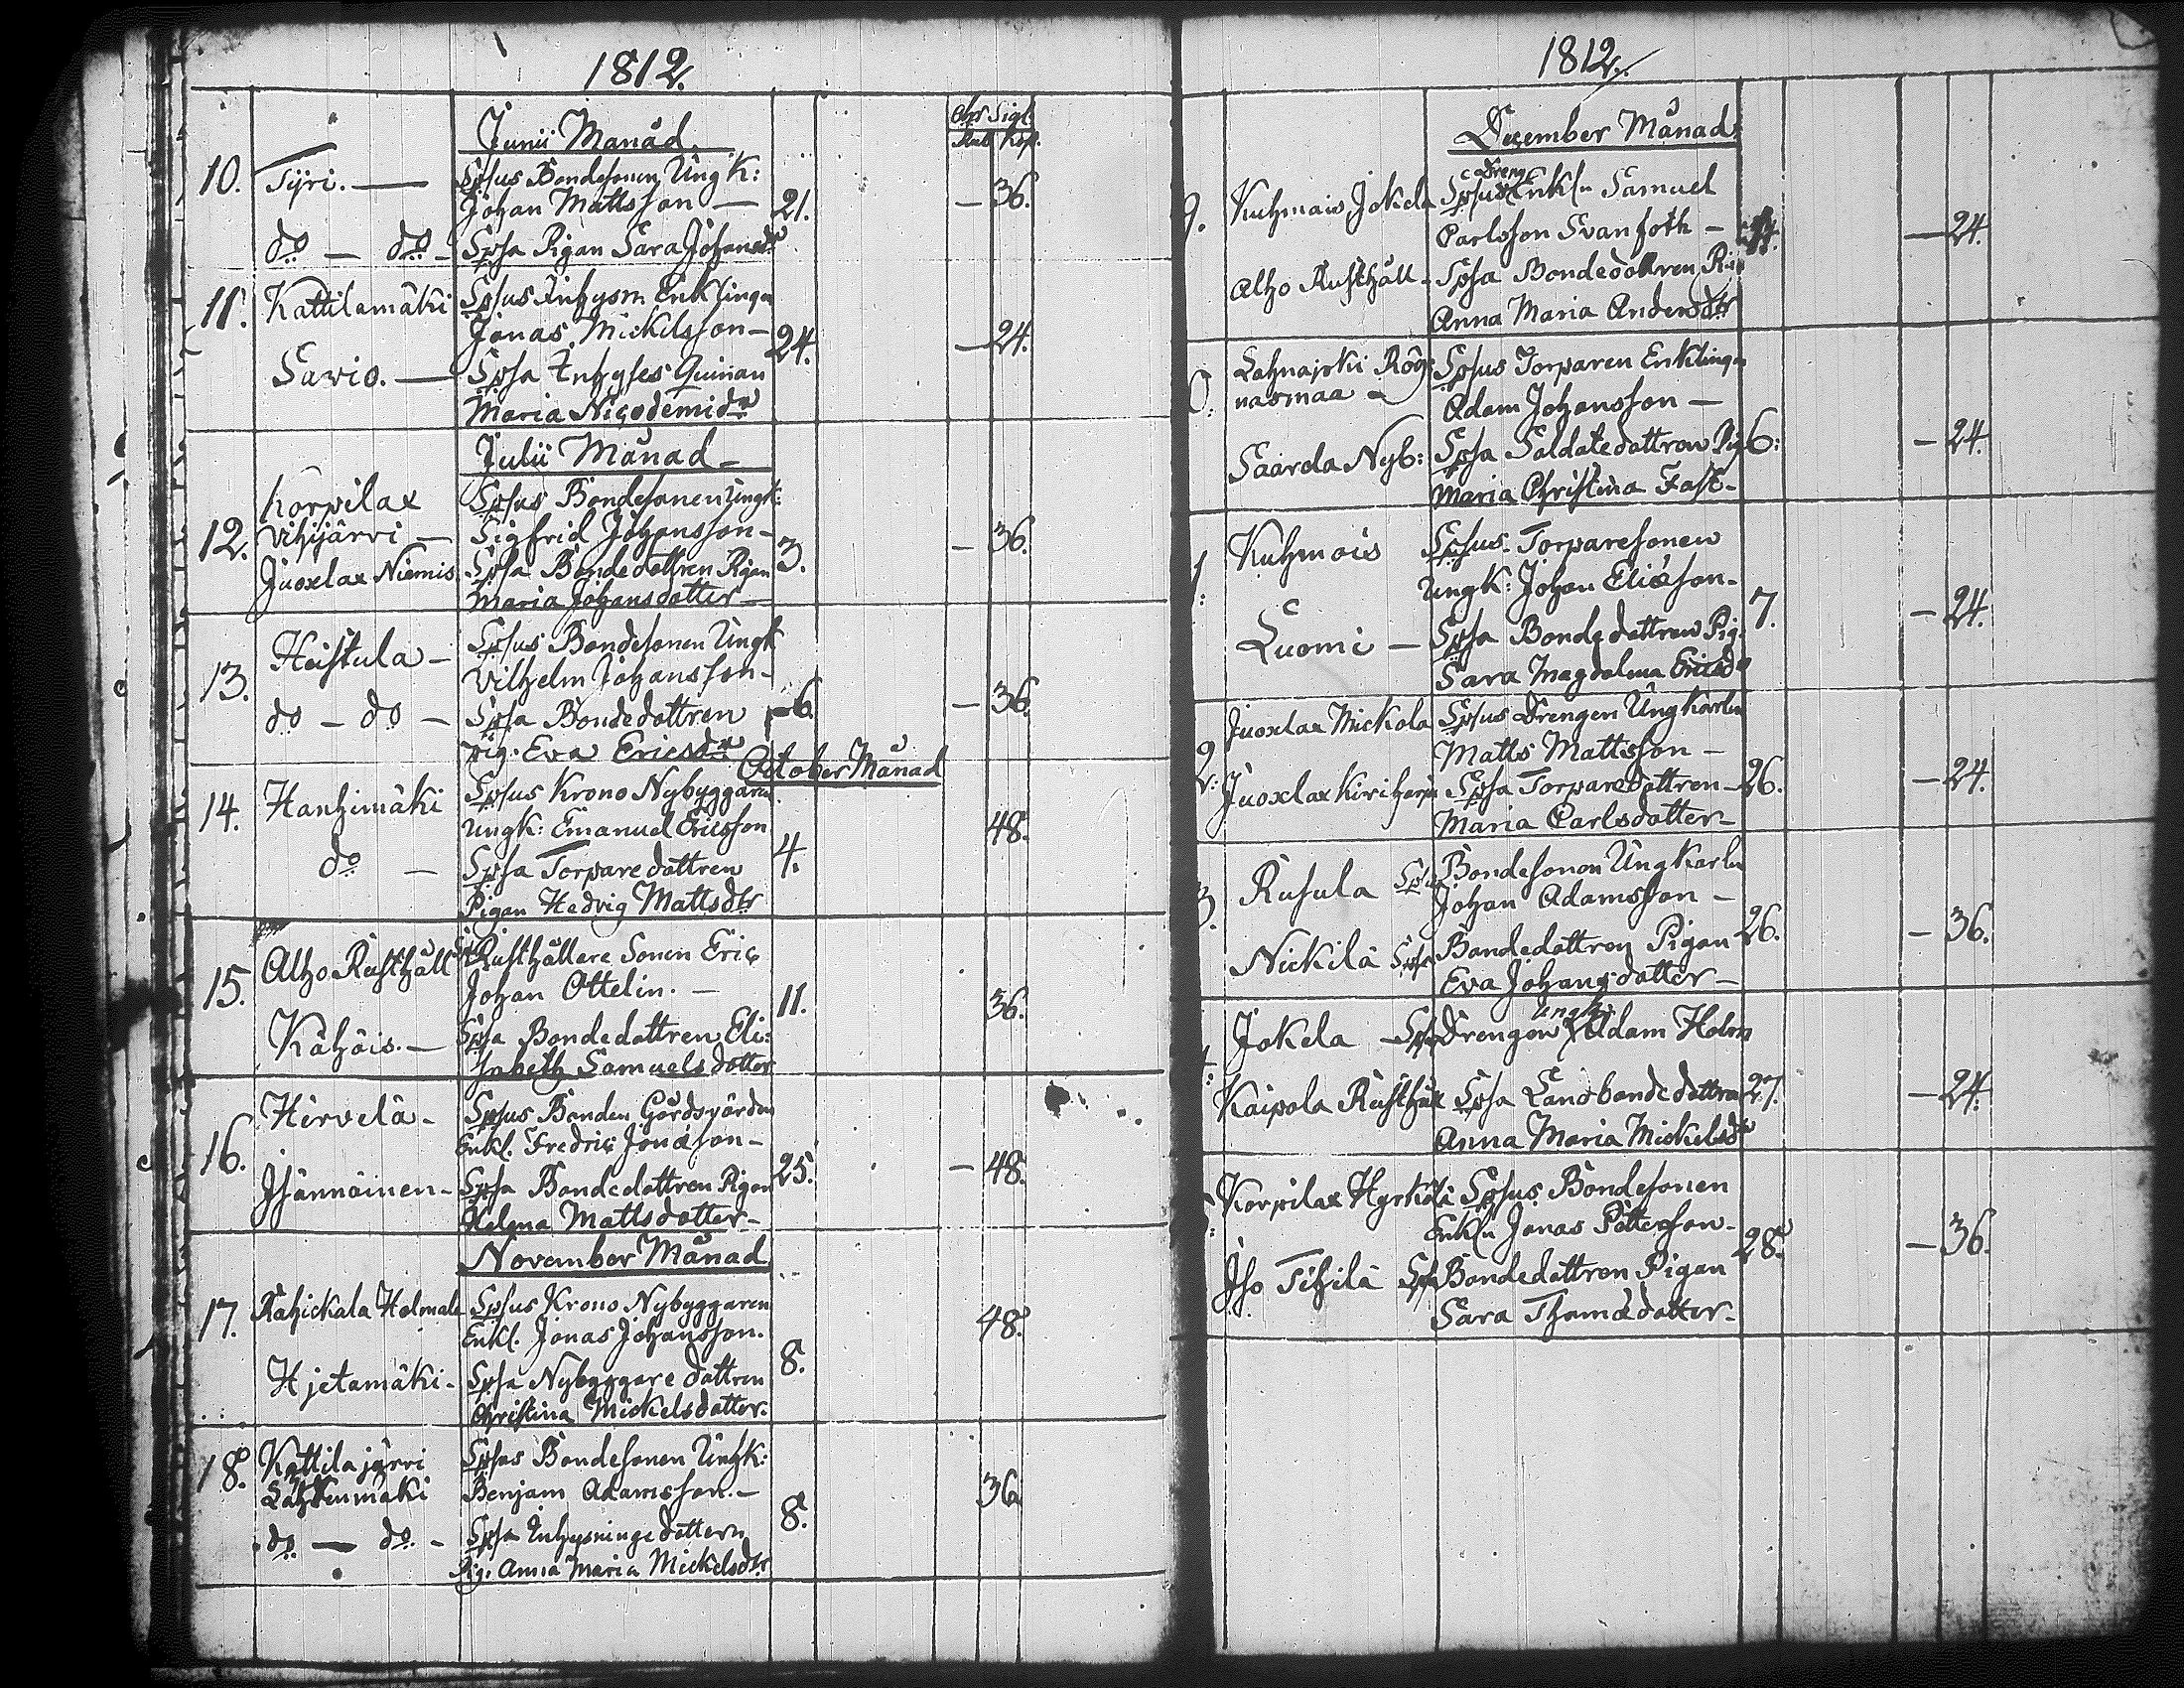 1812.
Chr Sigl.
Rub Kop.
Junii Månad.
10. Tyri. — Spsus Bondesonen Ungk:
Johan Mattsson — 21. — 36.
do — do — Spsa Pigan Sara Johansdr
11. Kattilamäki Spsus Inhysn Enklingen
Jonas Mickelsson — 24. — 24.
Savio. — Spsa Inhyses Quinan
Maria Nicodemidr
Julii Månad —
Korpilax Spsus Bondesonen Ungk:
12. Vihijärvi — Sigfrid Johansson — 3. — 36.
Juoxlax Niemis Spsa Bondedottren Pigan
Maria Johansdotter —
13. Heistula — Spsus Bondesonen Ungk
Vilhelm Johansson —
do — do — Spsa Bondedottren 6. — 36.
Pig. Eva Ericsdr
October Månad
14. Hanhimäki Spsus Krono Nybyggaren
Ungk: Emanuel Ericsson 48.
do — Spsa Torparedottren 4.
Pigan Hedvig Mattsdtr
15. Alho Rusthåll Rusthållare Sonen Eric
Johan Ottelin. — 11. 36.
Kähöis. — Spsa Bondedottren Eli:
sabeth Samuelsdotter
16. Hirvelä — Spsus Bonden Gårdsvärden
Enkl. Fredric Jonasson —
Isännäinen — Spsa Bondedottren Pigan 25. — 48.
Helena Mattsdotter —
November Månad
17. Rahickala Holmala Spsus Krono Nybyggaren
Enkl. Jonas Johansson. 48.
Hjetamäki — Spsa Nybyggare dottren 8.
Christina Mickelsdotter.
18. Kattilajärvi Spsus Bondesonen Ungk:
Lähtenmäki Benjam Adamsson. — 36.
do — do — Spsa Inhysninge dottern 8.
Pig: Anna Maria Mickelsdtr
1812.
December Månad:
Dreng
9. Kuhmais Jokela Spsus Enkln Samuel
Carlsson Svanfoth — — 24.
Alho Rusthåll — Spsa Bondedottren Pi
Anna Maria Andersdtr
Spsus Torparen Enklingen
nasmaa — Adam Johansson —
Saarela Nyb: Spsa Soldatedottren Pig 6: — 24.
Maria Christina Fast —
Kuhmois Spsus Torparesonen
Ungk: Johan Eliæson —
Luomi — Spsa Bondedottren Pig. 7. — 24.
Sara Magdalena Ericsdr
Juoxlax Mickola Spsus Drengen Ungkarln
2: Matts Mattsson —
Juoxlax Spsa Torparedottren — 26. — 24.
Maria Carlsdotter —
3. Rusula Spsus Bondesonen Ungkarln
Johan Adamsson —
Nickilä Spsa Bondedottren Pigan 26. — 36.
Eva Johansdotter —
Ungk:
Jokela — Sps Drengen Adam Holm
Kaipola Rusthåll Spsa Landbondedottren 27. — 24.
Anna Maria Mickelsdr
Korpilax Hyrkölä Spsus Bondesonen
Enkln Jonas Pettersson —
Iso Tihilä Spsa Bondedottren Pigan 28. — 36.
Sara Thomædotter —